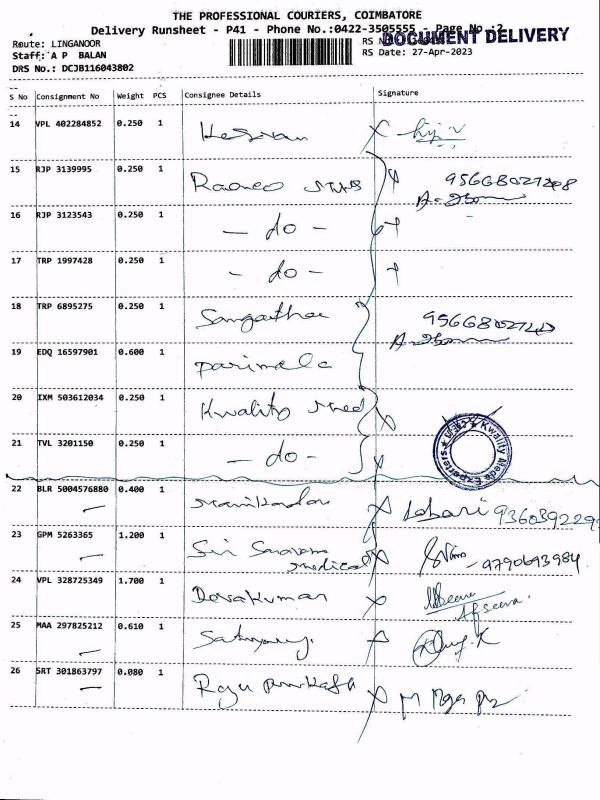 THE PROFESSIONAL COURIERS, COIMBATORE
Delivery Runsheet - P41 - Phone No.:0422-3505555 - Page No.:2
DOCUMENT DELIVERY
Route: LINGANOOR
Staff: A P BALAN
RS Date: 27-Apr-2023
DRS No.: DCJB116043802
S No Consignment No Weight PCS Consignee Details Signature
14 VPL 402284852 0.250 1 Kesavan
15 RJP 3139995 0.250 1
16 RJP 3123543 0.250 1 - do -
17 TRP 1997428 0.250 1 - do -
18 TRP 6895275 0.250 1
19 EDQ 16597901 0.600 1 Parimala
20 IXM 503612034 0.250 1 Kwality Med
21 TVL 3201150 0.250 1 - do -
Kwality Meds Exporters
22 BLR 5004576880 0.400 1 Manikandan
23 GPM 5263365 1.200 1 Sri Saravana
Medical 9790693984
24 VPL 328725349 1.700 1 Devakumar
25 MAA 297825212 0.610 1
26 SRT 301863797 0.080 1